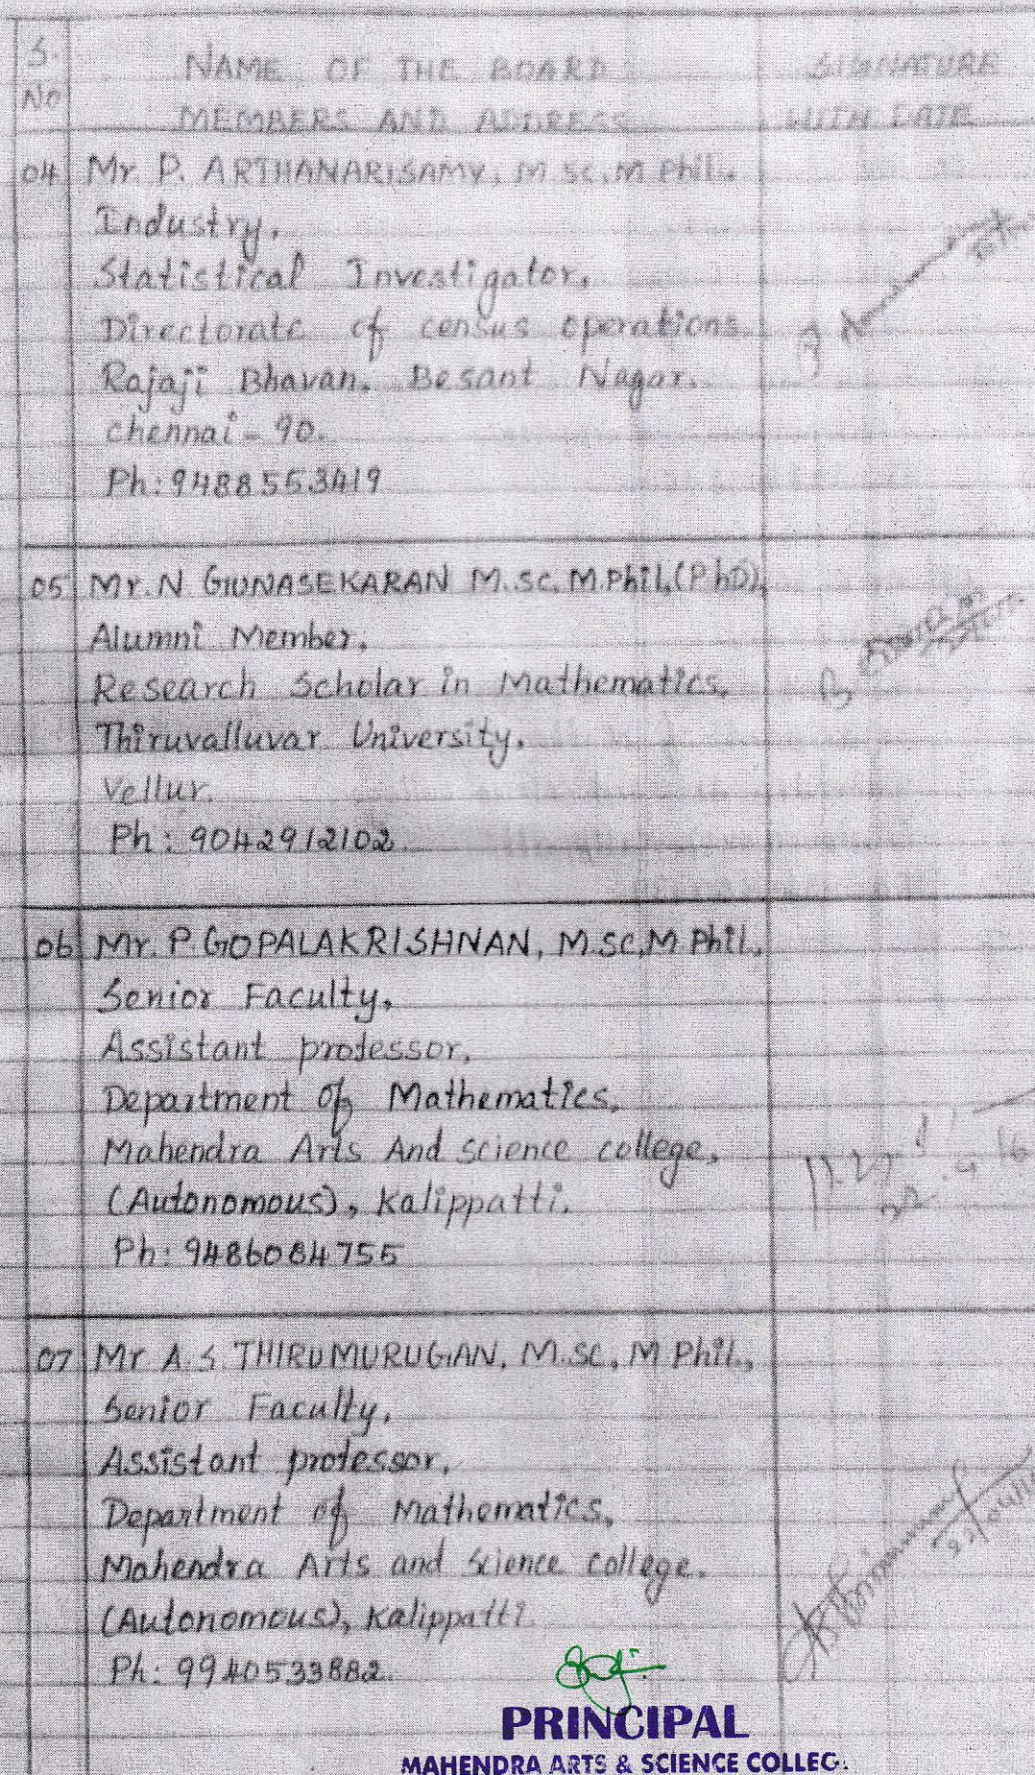 S. No
NAME OF THE BOARD MEMBERS AND ADDRESS
SIGNATURE WITH DATE
04 Mr. P. ARTHANARISAMY, M.Sc, M.Phil.
Industry,
Statistical Investigator,
Directorate of census operations.
Rajaji Bhavan. Besant Nagar.
chennai - 90.
Ph: 9488553419
05 Mr. N. GUNASEKARAN M.Sc, M.Phil,(PhD),
Alumni Member,
Research Scholar in Mathematics,
Thiruvalluvar University,
Vellur.
Ph: 9042912102
06 Mr. P. GOPALAKRISHNAN, M.Sc, M Phil,
Senior Faculty,
Assistant professor,
Department of Mathematics,
Mahendra Arts And science college,
(Autonomous), Kalippatti.
Ph: 9486084755
07 Mr A. S. THIRUMURUGAN, M.sc, M Phil,
Senior Faculty,
Assistant professor,
Department of Mathematics,
Mahendra Arts and Science college.
(Autonomous), Kalippatti
Ph: 9940533882
PRINCIPAL
MAHENDRA ARTS & SCIENCE COLLEG.